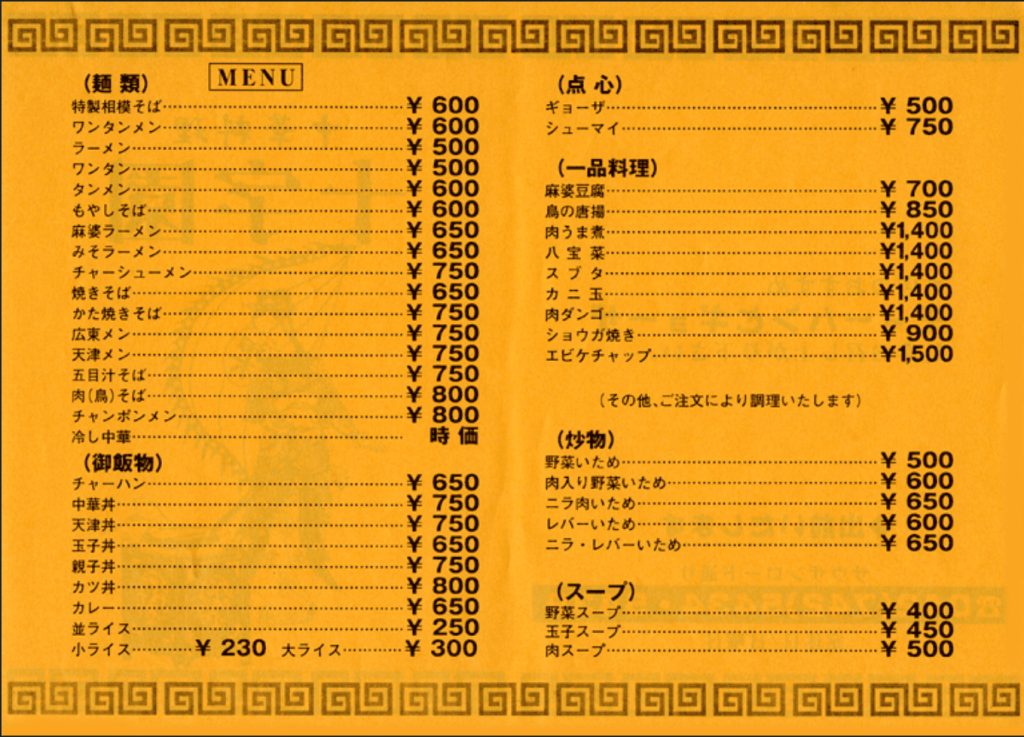 MENU
(麺 類)
特製相模そば ¥ 600
ワンタンメン ¥ 600
ラーメン ¥ 500
ワンタン ¥ 500
タンメン ¥ 600
もやしそば ¥ 600
麻婆ラーメン ¥ 650
みそラーメン ¥ 650
チャーシューメン ¥ 750
焼きそば ¥ 650
かた焼きそば ¥ 750
広東メン ¥ 750
天津メン ¥ 750
五目汁そば ¥ 750
肉(鳥)そば ¥ 800
チャンポンメン ¥ 800
冷し中華 時 価
(御飯物)
チャーハン ¥ 650
中華丼 ¥ 750
天津丼 ¥ 750
玉子丼 ¥ 650
親子丼 ¥ 750
カツ丼 ¥ 800
カレー ¥ 650
並ライス ¥ 250
小ライス ¥ 230 大ライス ¥ 300
(点 心)
ギョーザ ¥ 500
シューマイ ¥ 750
(一品料理)
麻婆豆腐 ¥ 700
鳥の唐揚 ¥ 850
肉うま煮 ¥1,400
八 宝 菜 ¥1,400
ス ブ タ ¥1,400
カ ニ 玉 ¥1,400
肉ダンゴ ¥1,400
ショウガ焼き ¥ 900
エビケチャップ ¥1,500
(その他、ご注文により調理いたします)
(炒物)
野菜いため ¥ 500
肉入り野菜いため ¥ 600
ニラ肉いため ¥ 650
レバーいため ¥ 600
ニラ・レバーいため ¥ 650
(スープ)
野菜スープ ¥ 400
玉子スープ ¥ 450
肉スープ ¥ 500